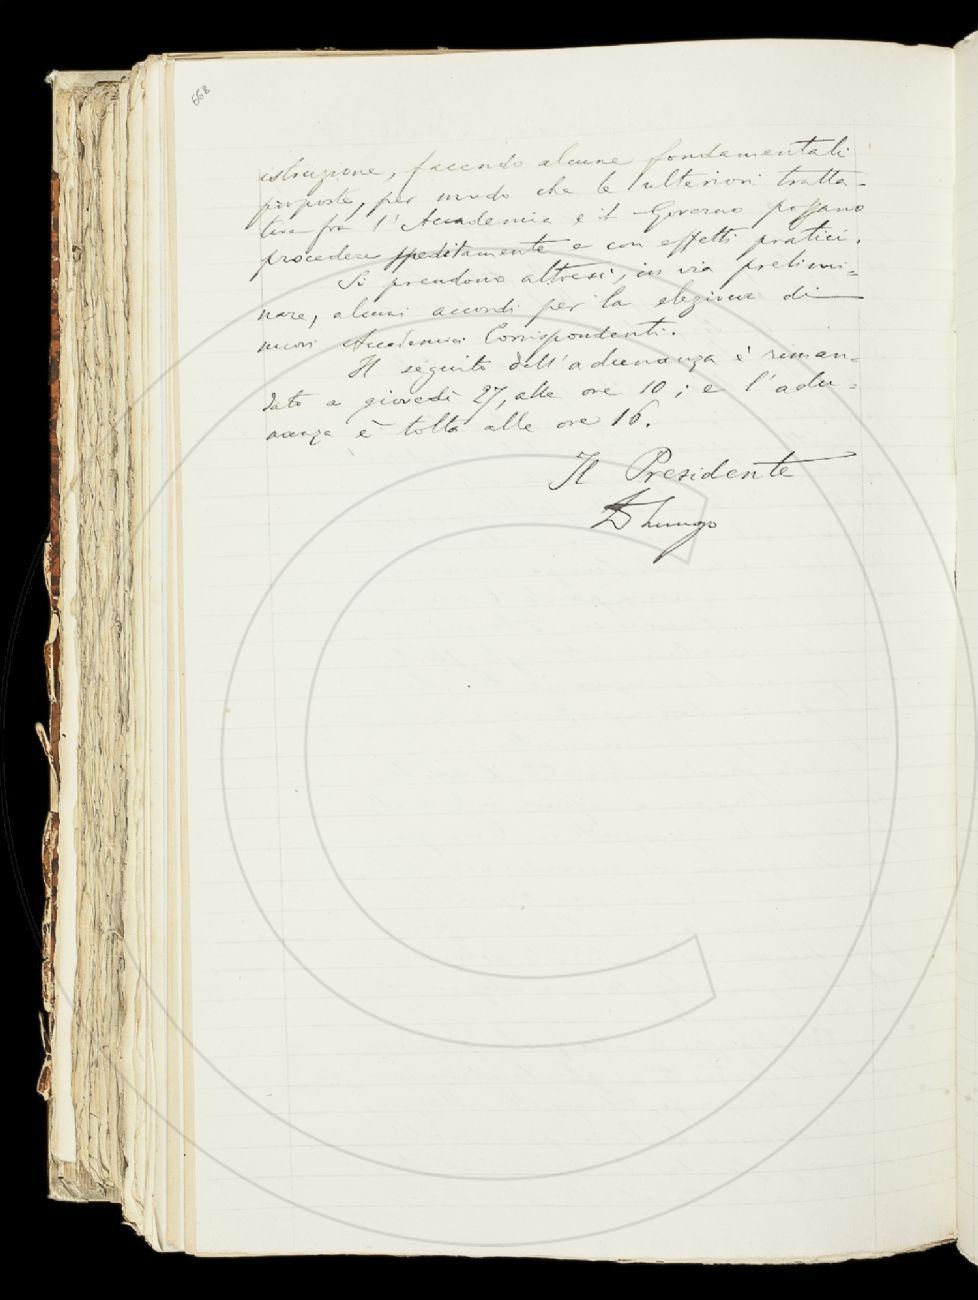 668
istruzione, facendo alcune fondamentali
proposte, per modo che le ulteriori tratta-
tive fra l'Accademia e il Governo possano
procedere speditamente e con effetti pratici.
Si prendono altresì, in via prelimi=
nare, alcuni accordi per la elezione di
nuovi Accademici Corrispondenti.
Il seguito dell'adunanza è riman=
dato a giovedì 27, alle ore 10; e l'adu=
nanza è tolta alle ore 16.
Il Presidente